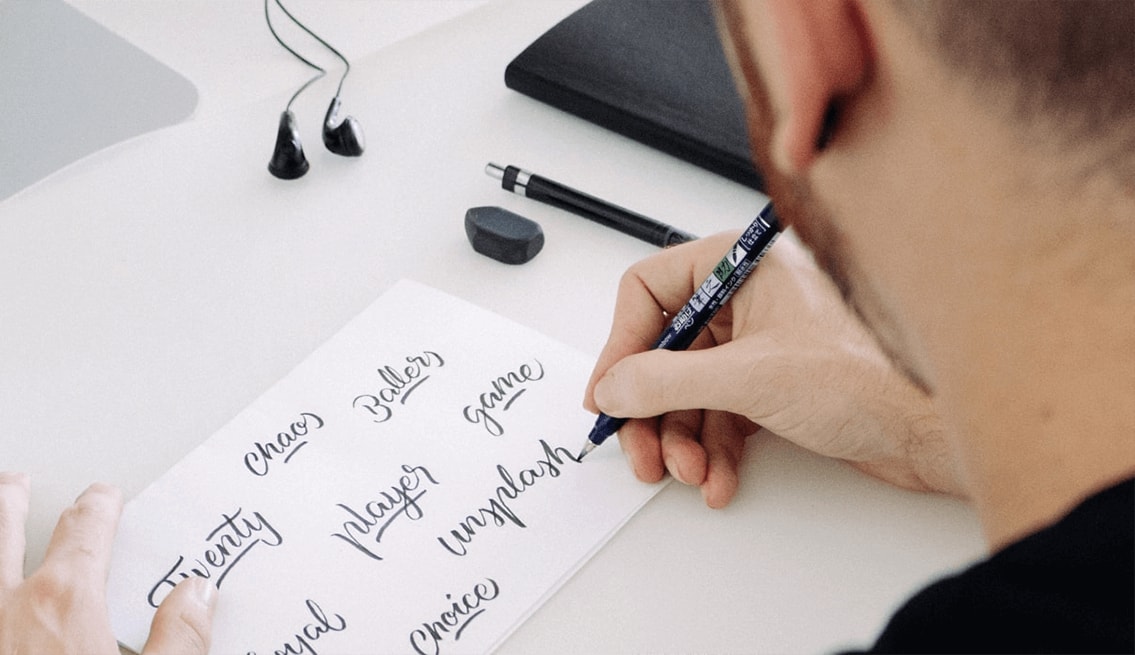 chaos Ballers game
Twenty player unsplash
choice